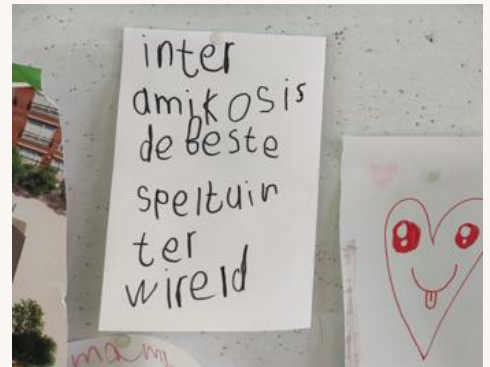 inter
amikosis
de beste
speltuin
ter
wireld
mami